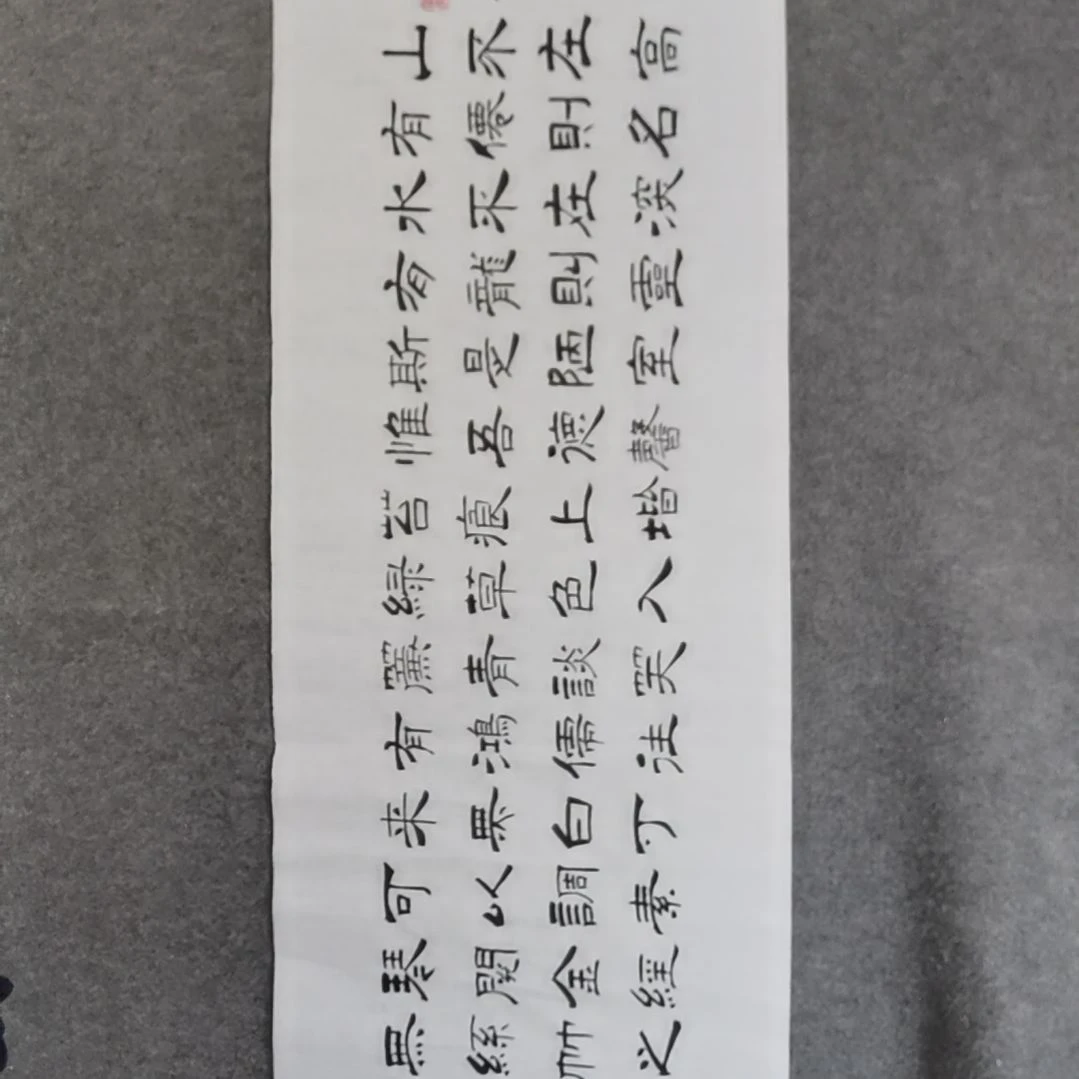 山不在高
有僊則名
水不在深
有龍則靈
斯是陋室
惟吾德馨
苔痕上堦
緑草色入
簾青談笑
有鴻儒往
来無白丁
可以調素
琴閱金經
無絲竹之